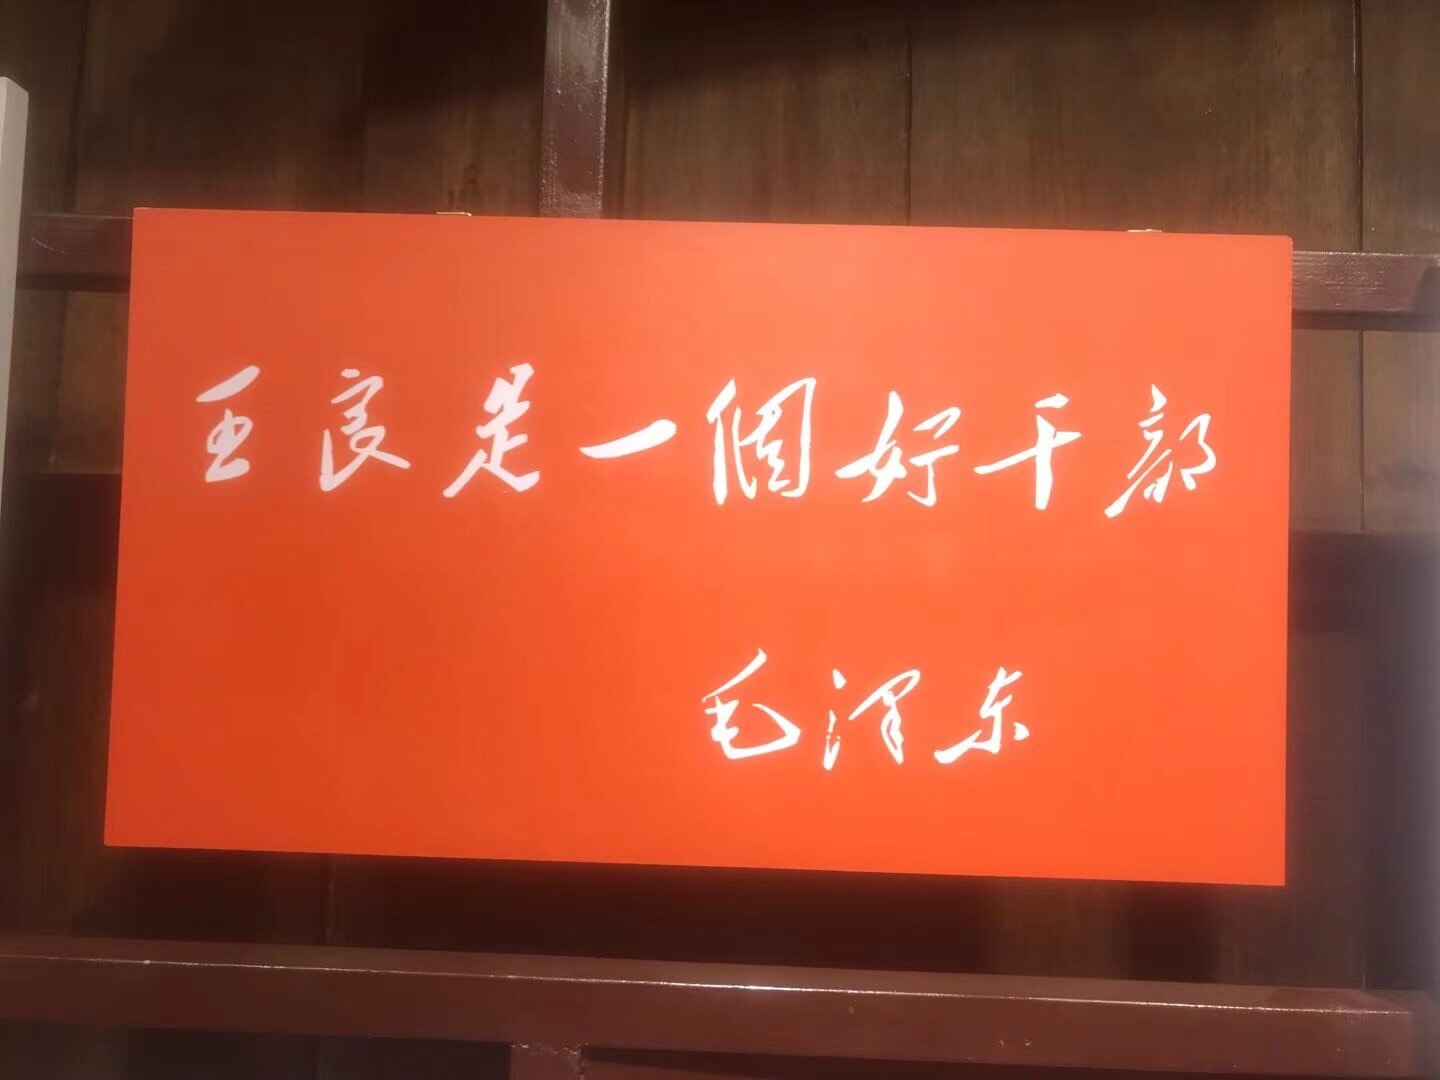 王良是一個好干部
毛澤东